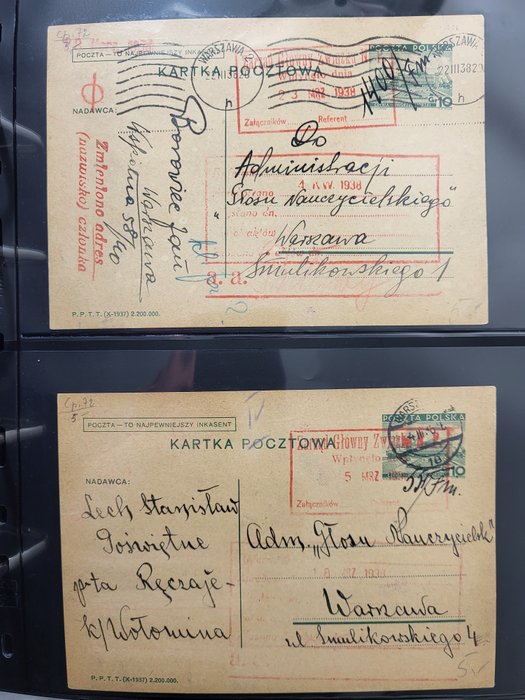 Cp. 72
POCZTA – TO NAJPEWNIEJSZY INKASENT
KARTKA POCZTOWA
POCZTA POLSKA
10
WARSZAWA
22 III 38 20
h
NADAWCA:
Borowiec Jan
Warszawa
Wspólna 58/40
Zmieniono adres
(nazwisko) członka
Zarząd Główny Związku
dnia
23 MRZ 1938
Załączników Referent
1400/Am
Do
Administracji
"Głosu Nauczycielskiego"
Warszawa
Smulikowskiego 1
4 KW. 1938
a. a.
P. P. T. T. (X-1937) 2.200.000.
Cp. 72
5.-
IV
POCZTA – TO NAJPEWNIEJSZY INKASENT
KARTKA POCZTOWA
POCZTA POLSKA
10
NADAWCA:
Lech Stanisław
Poświętne
p-ta Ręczaje-
k/Wołomina
Zarząd Główny Związku
Wpłynęło
5 MRZ
Załączników
Adm. „Głosu Nauczycielsk"
Warszawa
ul. Smulikowskiego 4
1938
5.-
P. P. T. T. (X-1937) 2.200.000.